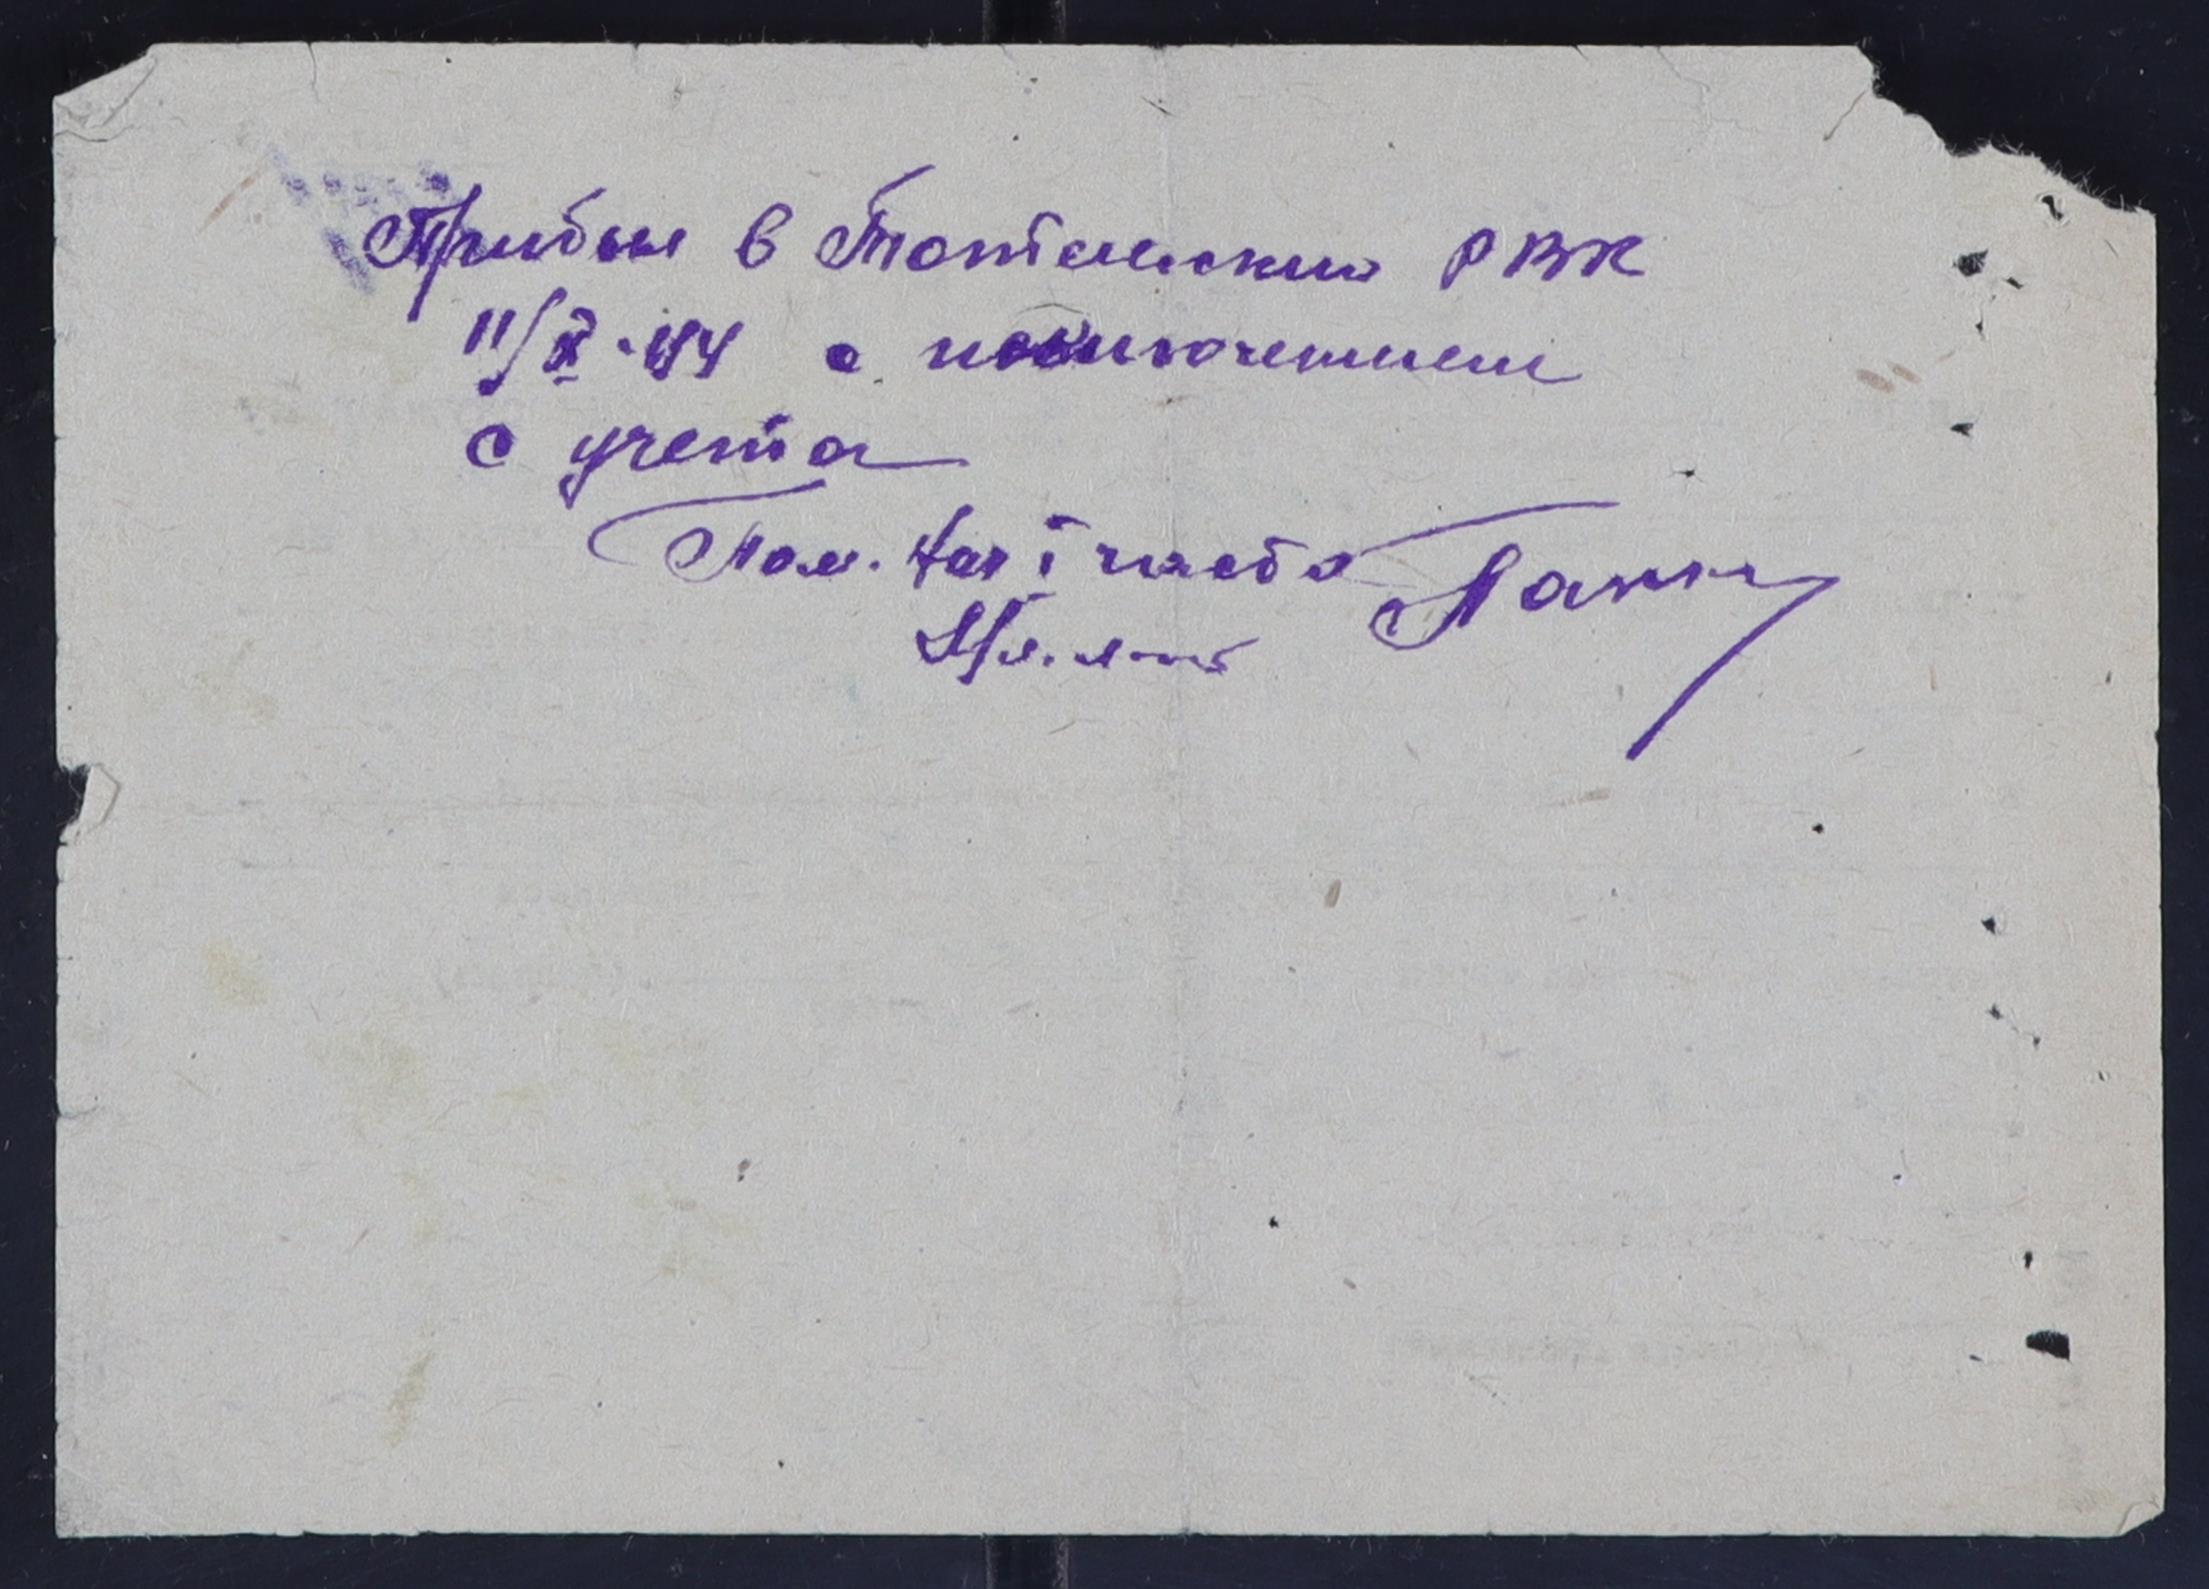 Прибыл в Тотемский РВК
11/X-44 с исключением
с учета
Пом. Нач I части
Мл. л-нт